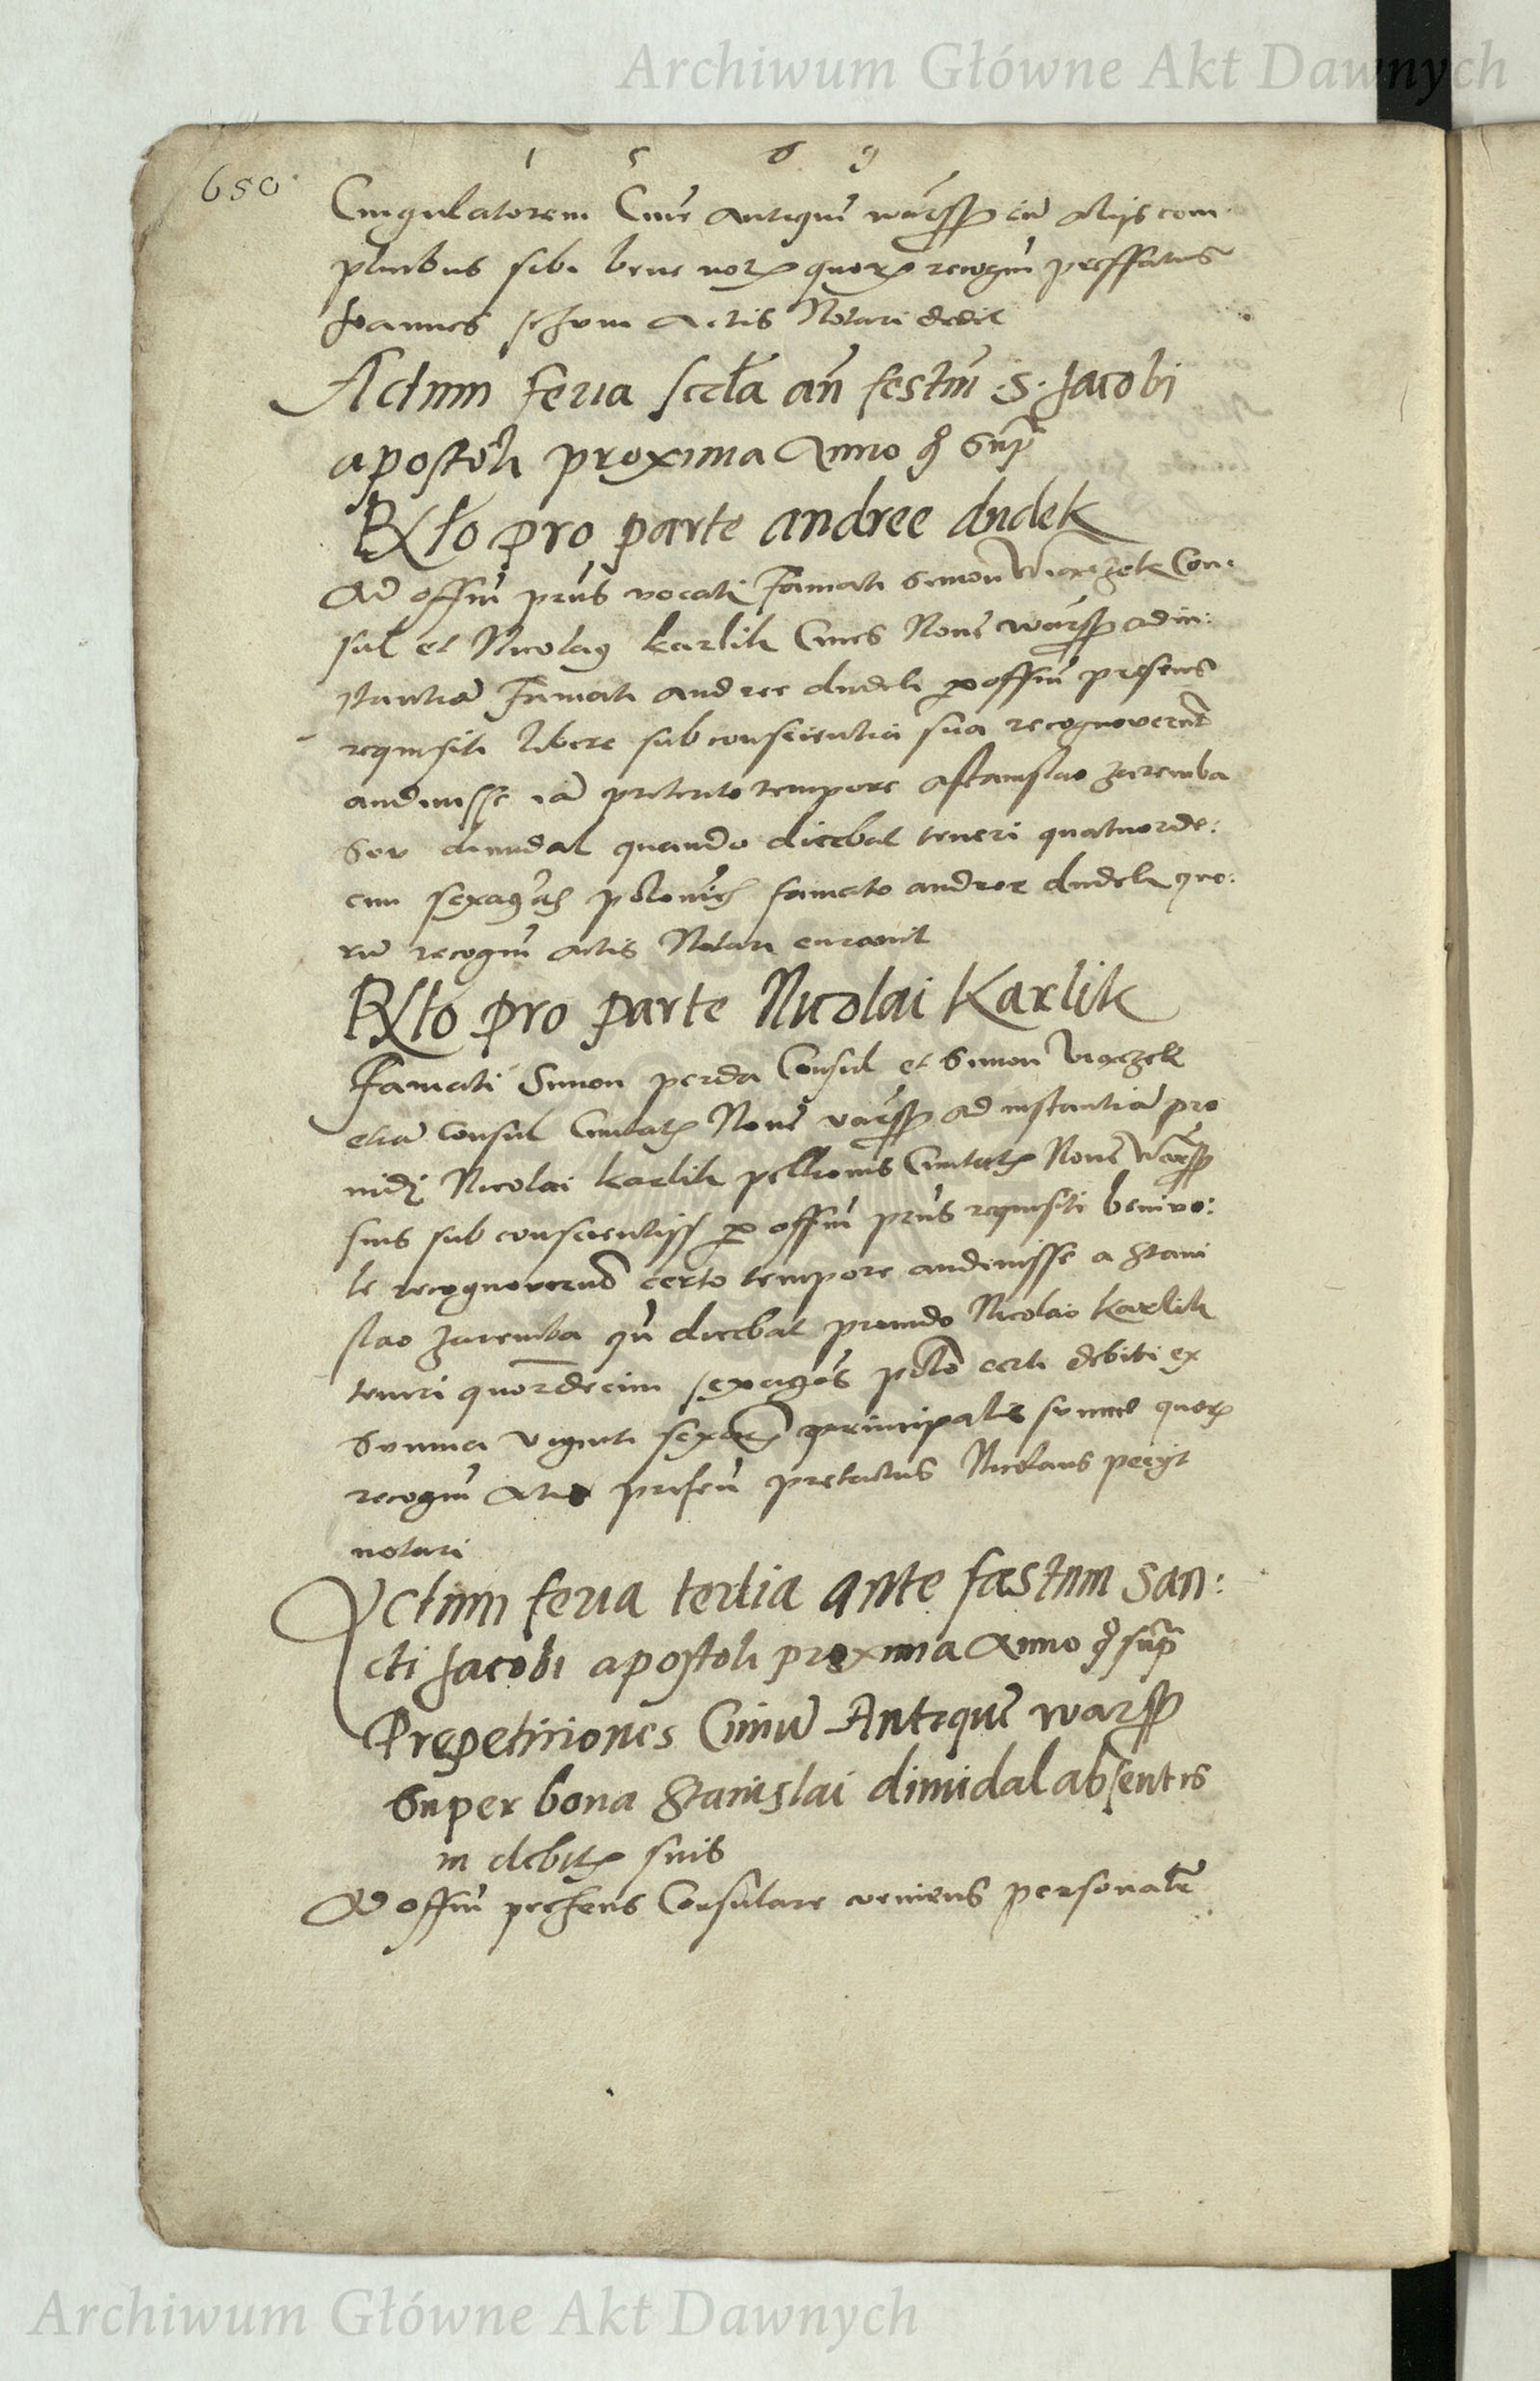 Archiwum Główne Akt Dawnych
1 5 6 9
650
Cingulatorem Cive antique warss cum alijs com
pluribus sibi bene notis quorum recogm preffatus
Joannes schom actis Notari dedit
Actum feria secda an festum S. Jacobi
apostoli proxima Anno q supra
Rxto pro parte andree dudek
Ad offm prns vocati Famati Simon Viaczek Con
sul et Nicolaus karlik Cives Nove warss ad in:
stantia Famati andree dudek p offm presens
requisiti libere sub conscientia sua recognoverunt
audivisse ia preterito tempore a stanislao zaremba
seu dimidal quando dicebat teneri quatuorde:
cim sexagenas polonic famato andree dudek quo:
rum recogm actis Notari curavit
Rxto pro parte Nicolai Karlik
Famati Simon perda Consul et Simon Viaczek
etia Consul Civitatis Nove warss ad instantia pro
vidi Nicolai karlik pellionis Civitatis Nove warss
suis sub conscientiis p offm prns requisiti benivo:
le recognoverunt certo tempore audivisse a Stani
slao zaremba qn dicebat provido Nicolao karlik
teneri quordecim sexagens polo certi debiti ex
summa viginti sexag principalis summe quorum
recogm actis presen prefatus Nicolaus pecijt
notari
Actum feria tertia ante festum san:
cti Jacobi apostoli proxima Anno q supra
Prepetitiones Civium Antique warss
super bona Stanislai dimidal absentis
in debitis suis
Ad offm presens Consulare veniens personalr
Archiwum Główne Akt Dawnych